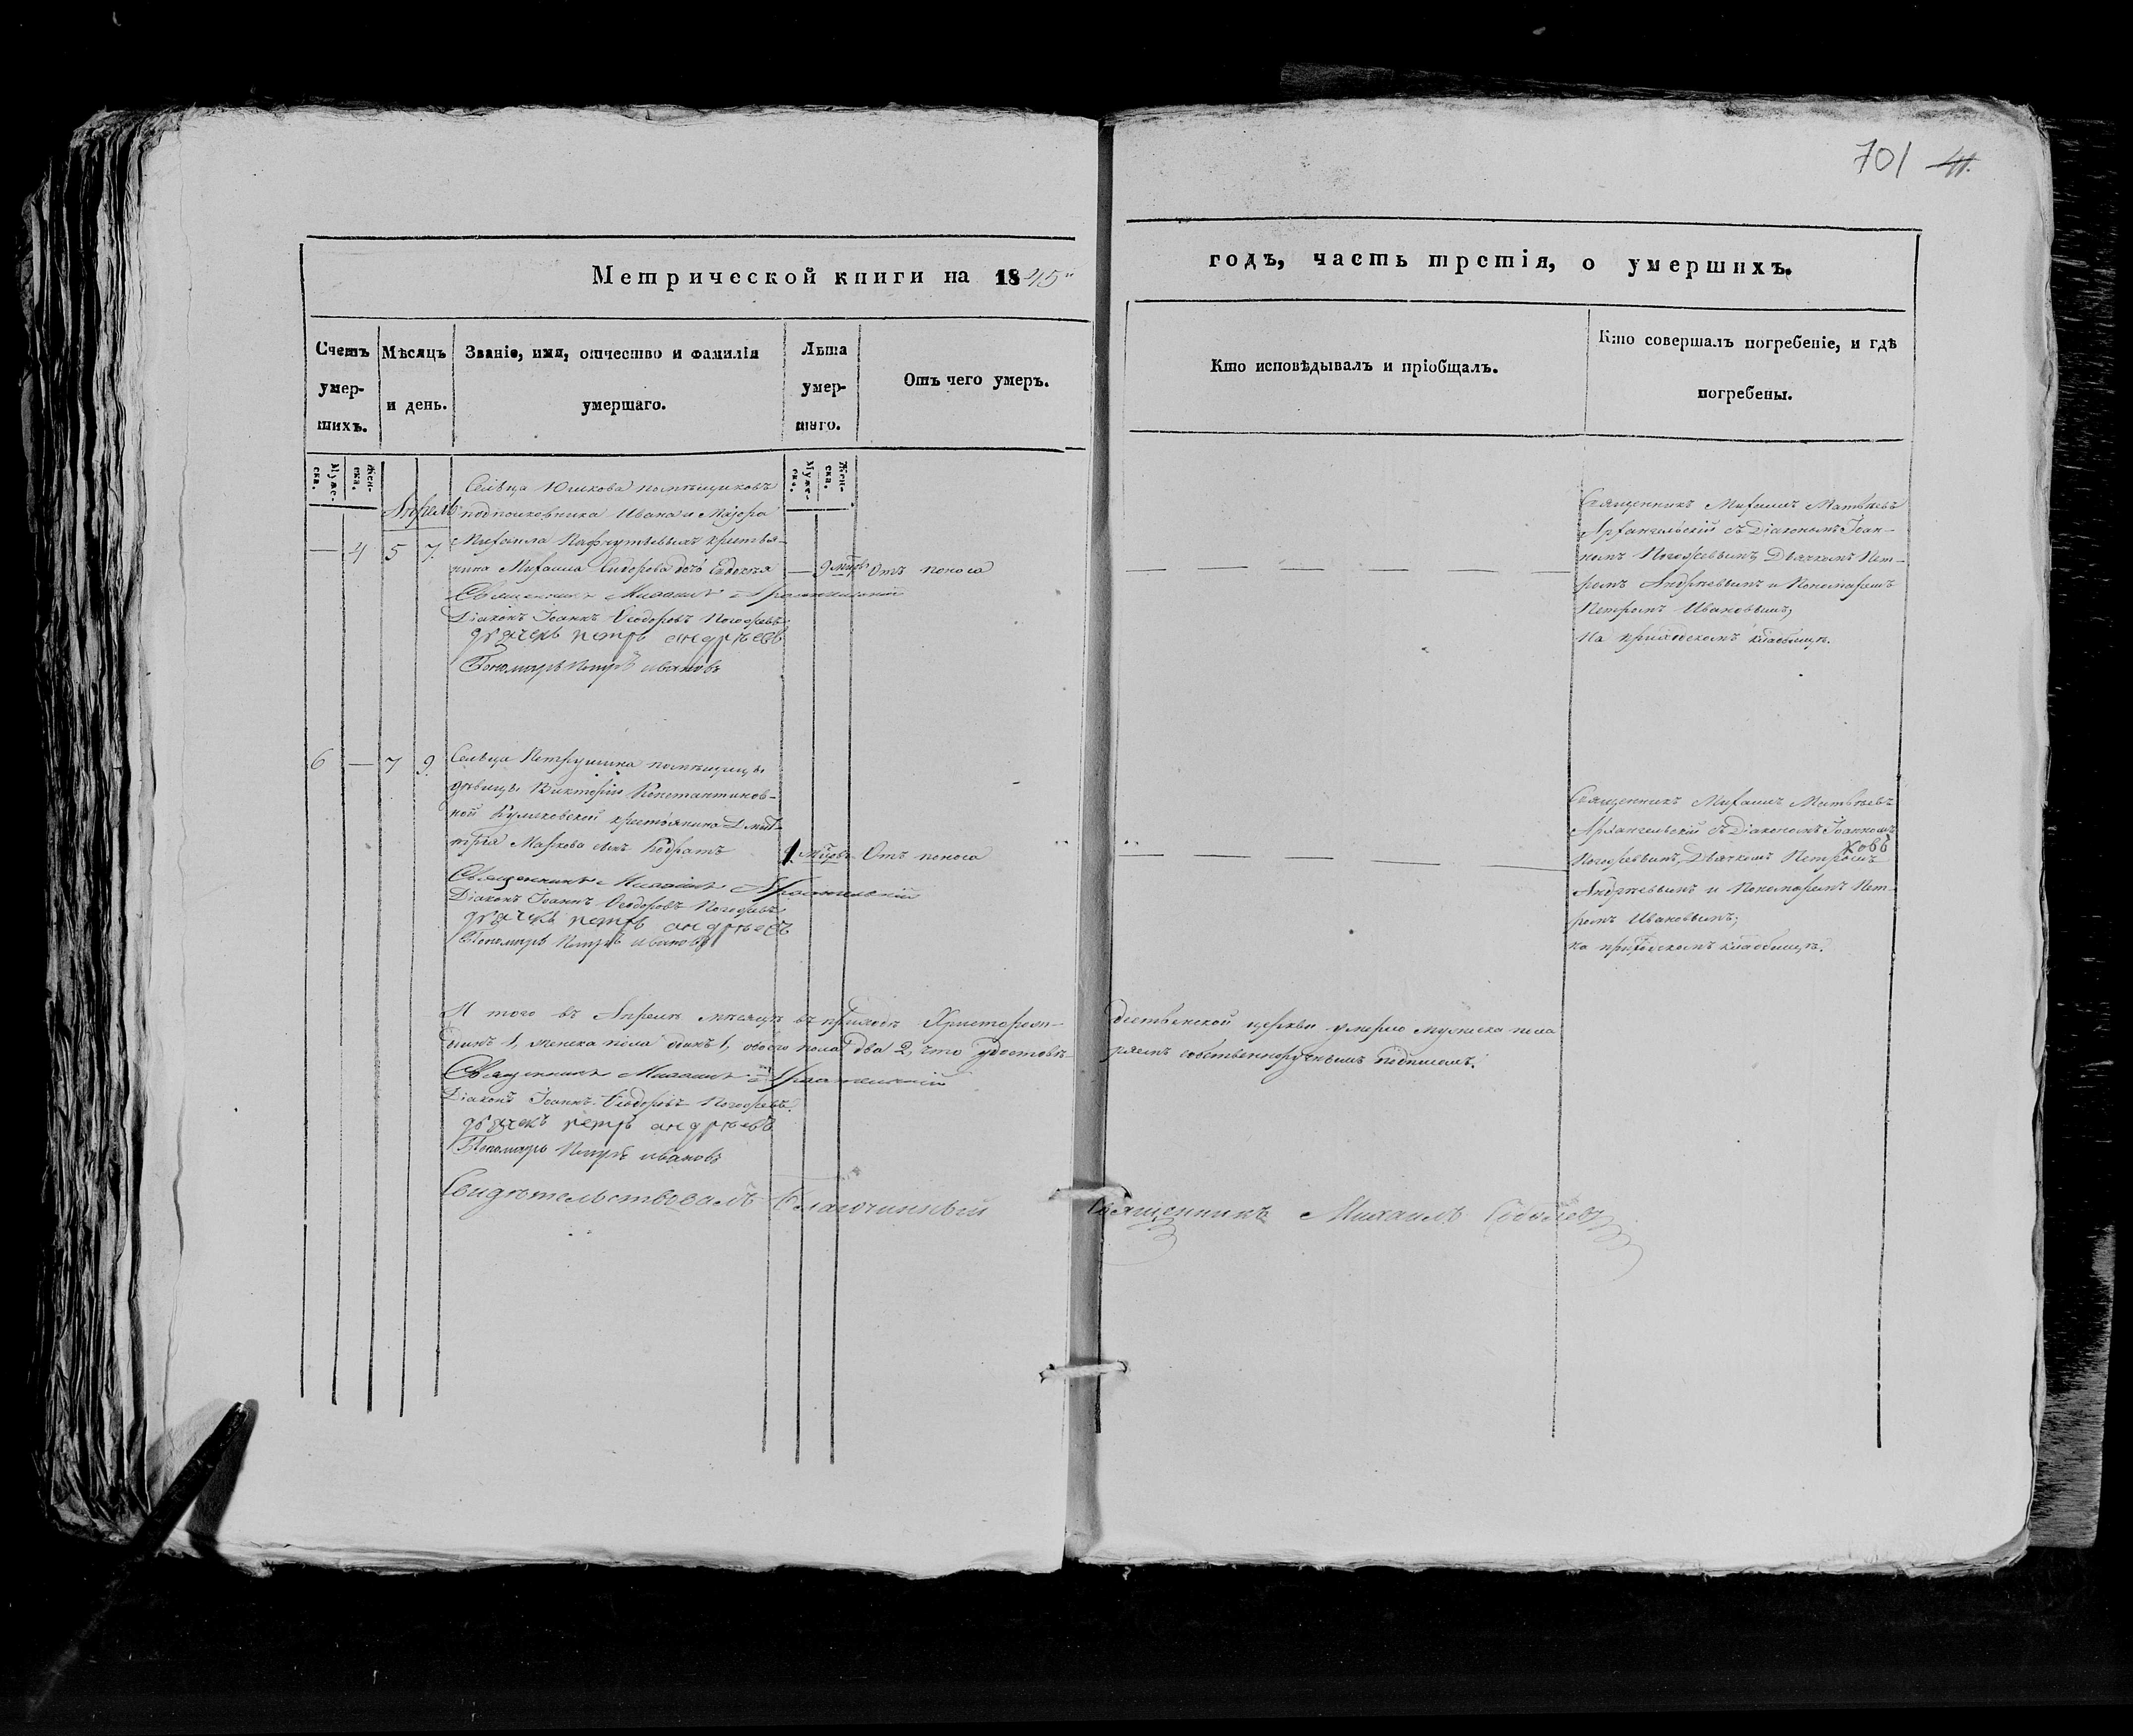 701 41.
Метрической книги на 1845й
годъ, часть третія, о умершихъ.
Счетъ умер-шихъ.
Мѣсяцъ и день.
Званіе, имя, отчество и фамилія умершаго.
Лѣта умер-шаго.
Отъ чего умеръ.
Кто исповѣдывалъ и пріобщалъ.
Кто совершалъ погребеніе, и гдѣ погребены.
Муже-ска.
Жен-ска.
Муже-ска.
Жен-ска.
Апрель
Сельца Юшкова помѣщиковъ
подполковника Ивана и Маіора
Михаила Пафнутьевыхъ крестья-
нина Михаила Сидорова дочь Евдокея
— 4 5 7.
— 9 мѣс. Отъ поноса
Священникъ Михаилъ Архангельскій
Діаконъ Іоаннъ Ѳеодоровъ
дьячекъ петръ андрѣевъ
Пономарь Петръ ивановъ
Священникъ Михаилъ Матвѣевъ
Архангельскій съ Діакономъ Іоан-
номъ Дьячкомъ Пет-
ромъ Андрѣевымъ и Пономаремъ
Петромъ Ивановымъ,
на приходскомъ кладбищѣ.
6 — 7 9.
Сельца Петрушина помѣщицы
дѣвицы Викторіи Константинов-
ной крестьянина Дмит-
трія Маркова сынъ Кодратъ
1 Отъ поноса
Священникъ Михаилъ Архангельскій
Діаконъ Іоаннъ Ѳеодоровъ
дьячекъ петръ андрѣевъ
Пономарь Петръ ивановъ
Священникъ Михаилъ Матвѣевъ
Архангельскій съ Діакономъ Іоанномъ
Дьячкомъ Петромъ
Андрѣевымъ и Пономаремъ Пет-
ромъ Ивановымъ,
на приходскомъ кладбищѣ.
И того въ Апрелѣ мѣсяцѣ въ приходѣ Христорож-
дественской церкви умерло мужеска пола
одинъ 1, женска пола одинъ 1, обоего пола два 2, что удостовѣ-
ряемъ собственноручнымъ подписомъ.
Священникъ Михаилъ Архангельскій
Діаконъ Іоаннъ Ѳеодоровъ
дьячекъ петръ андрѣевъ
Пономарь Петръ ивановъ
Свидѣтельствовалъ Благочинный
Священникъ Михаилъ Соболевъ